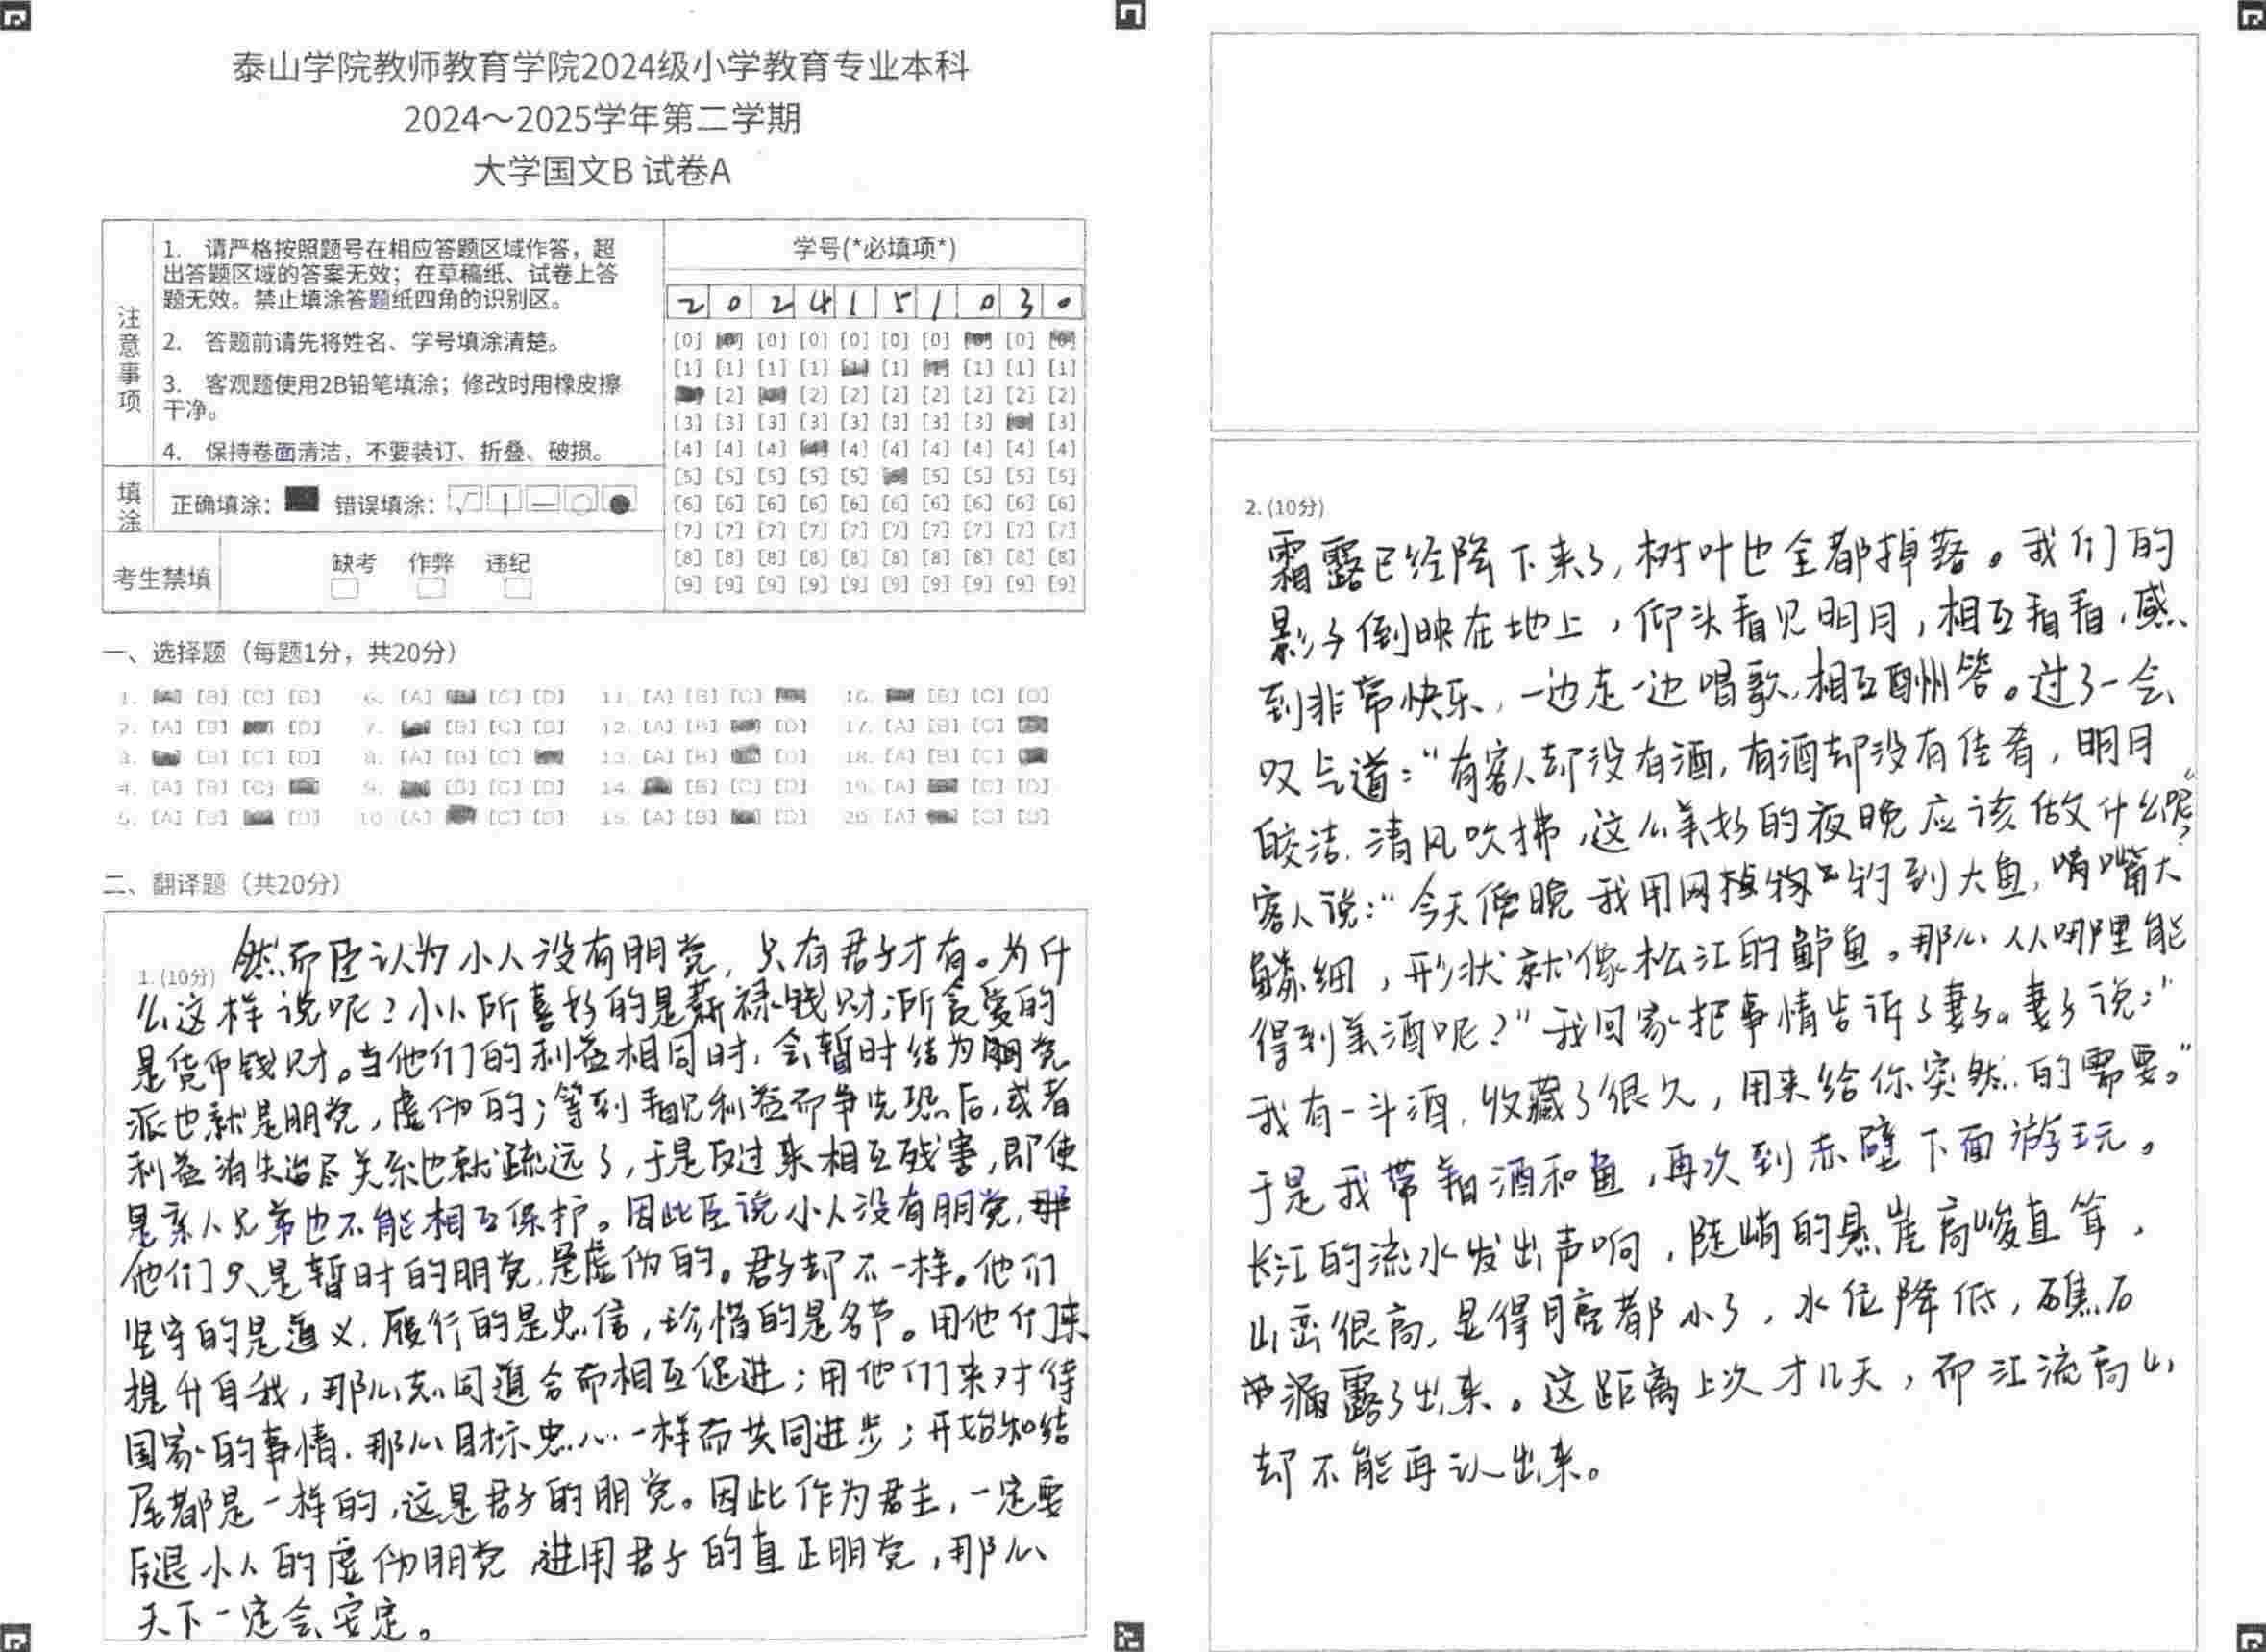 泰山学院教师教育学院2024级小学教育专业本科
2024～2025学年第二学期
大学国文B 试卷A
注意事项
1. 请严格按照题号在相应答题区域作答，超
出答题区域的答案无效；在草稿纸、试卷上答
题无效。禁止填涂答题纸四角的识别区。
2. 答题前请先将姓名、学号填涂清楚。
3. 客观题使用2B铅笔填涂；修改时用橡皮擦
干净。
4. 保持卷面清洁，不要装订、折叠、破损。
填涂
正确填涂： 错误填涂：
考生禁填
缺考 作弊 违纪
学号(*必填项*)
2 0 2 4 1 5 1 0 3 0
[0] [0] [0] [0] [0] [0] [0]
[1] [1] [1] [1] [1] [1] [1] [1]
[2] [2] [2] [2] [2] [2] [2] [2]
[3] [3] [3] [3] [3] [3] [3] [3] [3]
[4] [4] [4] [4] [4] [4] [4] [4] [4]
[5] [5] [5] [5] [5] [5] [5] [5] [5]
[6] [6] [6] [6] [6] [6] [6] [6] [6] [6]
[7] [7] [7] [7] [7] [7] [7] [7] [7] [7]
[8] [8] [8] [8] [8] [8] [8] [8] [8] [8]
[9] [9] [9] [9] [9] [9] [9] [9] [9] [9]
一、选择题（每题1分，共20分）
1. [A] [B] [C] [D] 6. [A] [C] [D] 11. [A] [B] [C] 16. [B] [C] [D]
2. [A] [B] [D] 7. [B] [C] [D] 12. [A] [B] [D] 17. [A] [B] [C]
3. [B] [C] [D] 8. [A] [B] [C] 13. [A] [B] [D] 18. [A] [B] [C]
4. [A] [B] [C] 9. [B] [C] [D] 14. [B] [C] [D] 19. [A] [C] [D]
5. [A] [B] [D] 10. [A] [C] [D] 15. [A] [B] [D] 20. [A] [C] [D]
二、翻译题（共20分）
1. (10分)
然而臣认为小人没有朋党，只有君子才有。为什
么这样说呢？小人所喜好的是薪禄钱财；所贪爱的
是货币钱财。当他们的利益相同时，会暂时结为朋党
派也就是朋党，虚伪的；等到看见利益而争先恐后，或者
利益消失殆尽关系也就疏远了，于是反过来相互残害，即使
是亲人兄弟也不能相互保护。因此臣说小人没有朋党，
他们只是暂时的朋党，是虚伪的。君子却不一样。他们
坚守的是道义，履行的是忠信，珍惜的是名节。用他们来
提升自我，那么志同道合而相互促进；用他们来对待
国家的事情，那么目标忠心一样而共同进步；开始和结
尾都是一样的，这是君子的朋党。因此作为君主，一定要
后退小人的虚伪朋党，进用君子的真正朋党，那么
天下一定会安定。
2. (10分)
霜露已经降下来了，树叶也全都掉落。我们的
影子倒映在地上，仰头看见明月，相互看看，感
到非常快乐，一边走一边唱歌，相互酬答。过了一会
叹气道：“有客人却没有酒，有酒却没有佳肴，明月
皎洁，清风吹拂，这么美好的夜晚应该做什么呢？”
客人说：“今天傍晚我用网钓到大鱼，嘴大
鳞细，形状就像松江的鲈鱼。那么从哪里能
得到美酒呢？”我回家把事情告诉了妻子。妻子说：“
我有一斗酒，收藏了很久，用来给你突然的需要。”
于是我带着酒和鱼，再次到赤壁下面游玩。
长江的流水发出声响，陡峭的悬崖高峻直耸，
山峦很高，显得月亮都小了，水位降低，礁石
漏露了出来。这距离上次才几天，而江流高山
却不能再认出来。